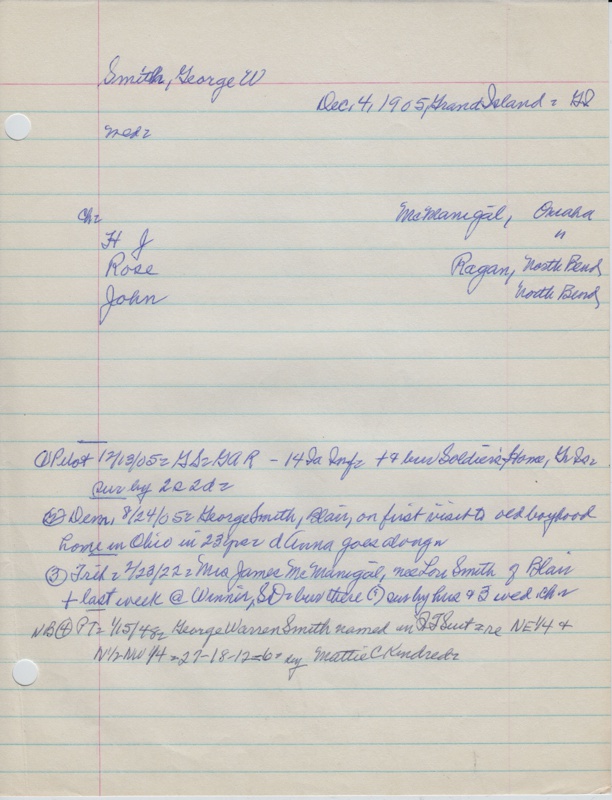 Smith, George W
Dec, 4, 1905, Grand Island = GS
med=
ch=
McManigal, Omaha
H J "
Rose Ragan, North Bend
John North Bend
① Pilot 12/13/05= GS= GAR - 14 Ia Inf= + & bur Soldiers Home, Gr Is=
sur by 2s 2d=
② Dem, 8/24/05= George Smith, Blair, on first visit to old boyhood
home in Ohio in 23 yr= d Anna goes along=
③ Trib= 2/23/22= Mrs James McManigal, nee Lou Smith of Blair
+ last week @ Winner, SD= bur there (?) sur by hus & 3 wed ch=
NB ④ PT= 1/15/48= George Warren Smith named in QT Suit= re NE1/4 &
N1/2 NW 1/4= 27-18-12= by Mattie C Kindred=